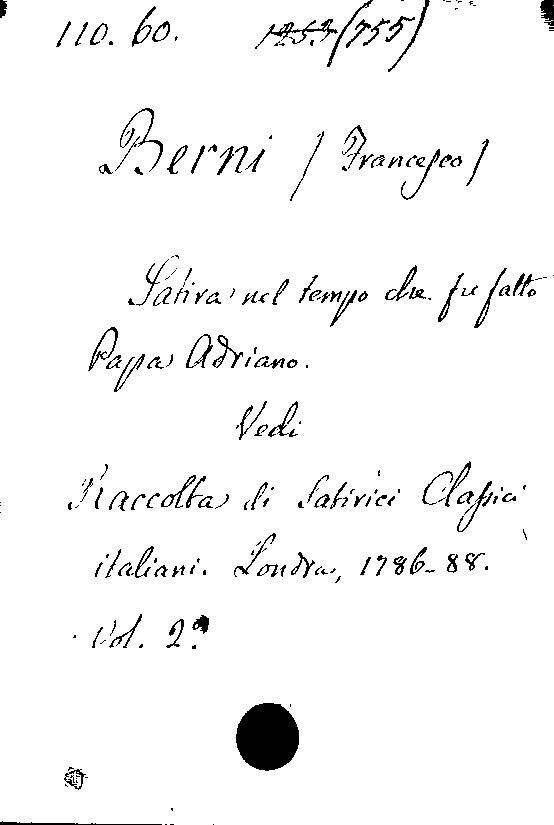 110. 60. 1253 (755)
Berni / Francesco /
Satira nel tempo che fu fatto
Papa Adriano.
Vedi
Raccolta di Satirici Classici
italiani. Londra, 1786-88.
Vol. 2º